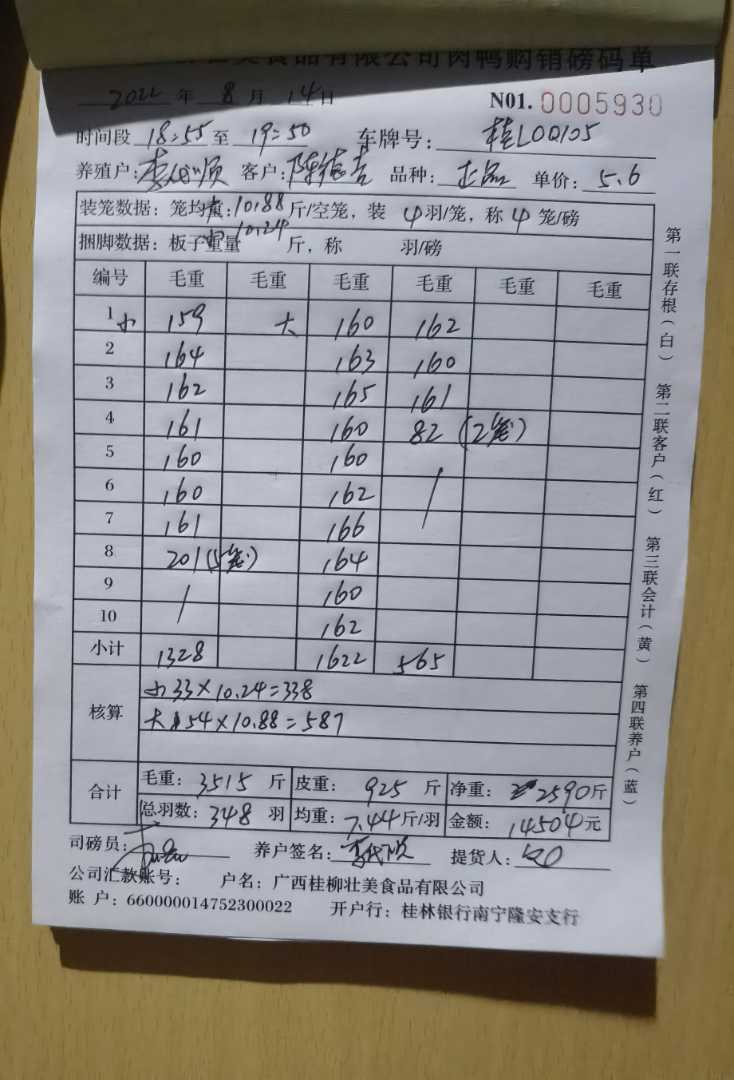 壮美食品有限公司肉鸭购销磅码单
2022 年 8 月 14 日 N01. 0005930
时间段 18:55 至 19:50 车牌号: 桂L0Q105
养殖户: 李代顺 客户: 陈德吉 品种: 正品 单价: 5.6
装笼数据: 笼均重: 大 10.88 斤/空笼, 装 4 羽/笼, 称 4 笼/磅
捆脚数据: 板子重量 小 10.24 斤, 称 羽/磅
编号 毛重 毛重 毛重 毛重 毛重 毛重
1 小 159 大 160 162
2 164 163 160
3 162 165 161
4 161 160 82 (2笼)
5 160 160
6 160 162 /
7 161 166
8 201 (5笼) 164
9 / 160
10 162
小计 1328 1622 565
核算 小 33×10.24=338
大 54×10.88=587
合计 毛重: 3515 斤 皮重: 925 斤 净重: 2590 斤
总羽数: 348 羽 均重: 7.44 斤/羽 金额: 14504 元
司磅员: 养户签名: 李代顺 提货人:
公司汇款账号: 户名: 广西桂柳壮美食品有限公司
账 户: 660000014752300022 开户行: 桂林银行南宁隆安支行
第一联存根(白) 第二联客户(红) 第三联会计(黄) 第四联养户(蓝)